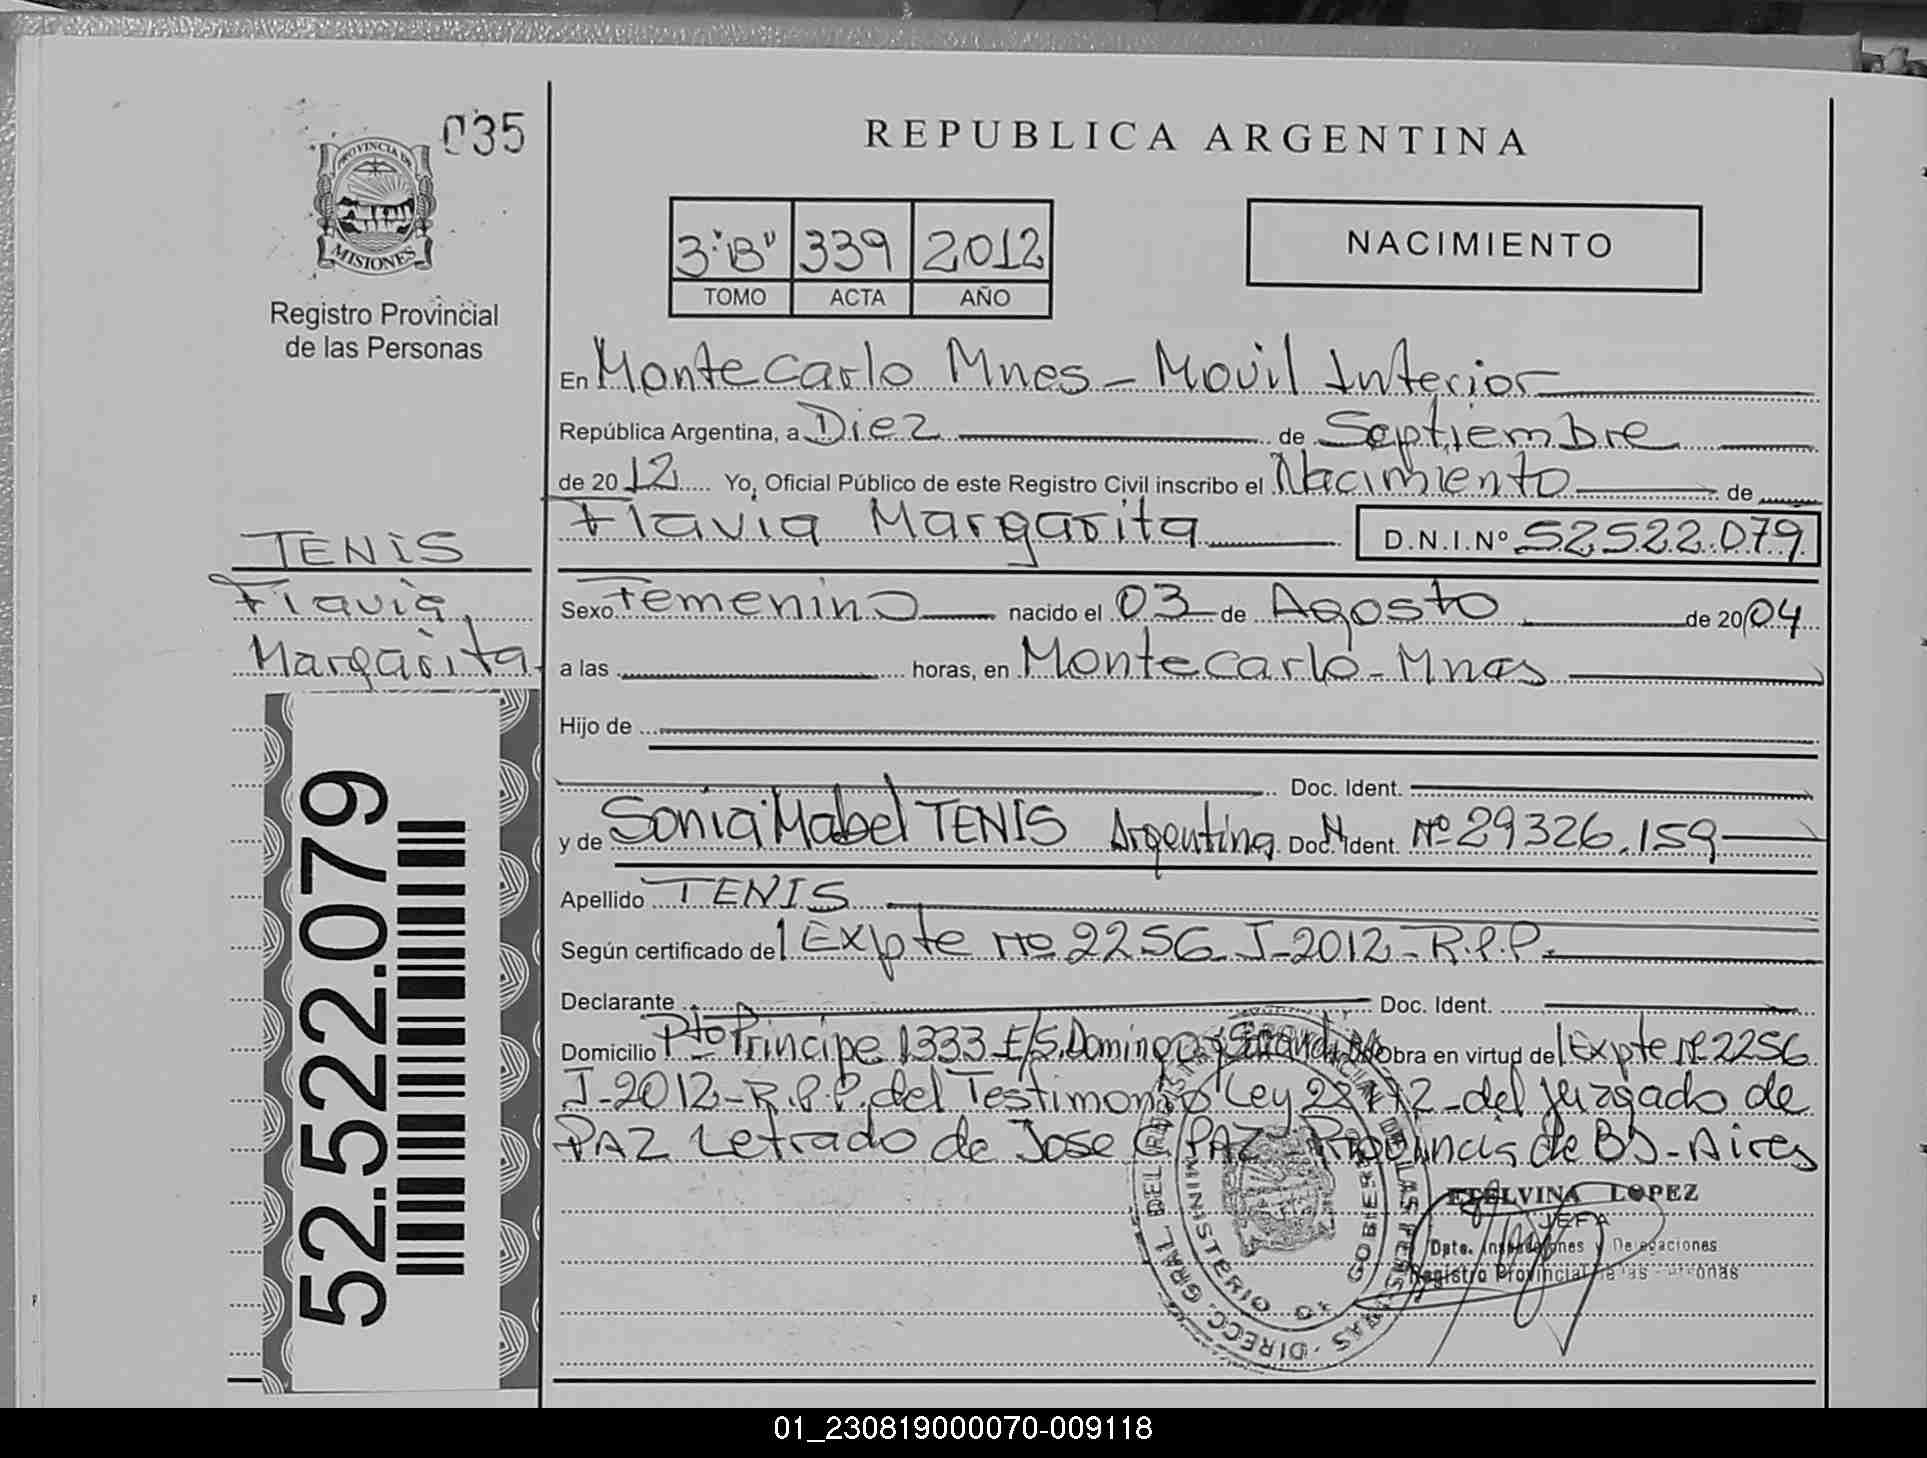 035
PROVINCIA DE
MISIONES
Registro Provincial
de las Personas
REPUBLICA ARGENTINA
3"B" 339 2012
TOMO ACTA AÑO
NACIMIENTO
En Montecarlo Mnes - Movil Interior
República Argentina, a Diez de Septiembre
de 2012 Yo, Oficial Público de este Registro Civil inscribo el Nacimiento de
Flavia Margarita D.N.I.Nº 52522.079
TENIS
Flavia
Margarita
Sexo Femenino nacido el 03 de Agosto de 2004
a las horas, en Montecarlo - Mnes
Hijo de
Doc. Ident.
y de Sonia Mabel TENIS Argentina Doc. Ident. Nº 29326.159
Apellido TENIS
Según certificado del Expte Nº 2256 J-2012-R.P.P.
Declarante Doc. Ident.
Domicilio Pto Principe 1333 E/S. Domingo y Obra en virtud del Expte Nº 2256
J-2012-R.P.P. del Testimonio Ley 22172 - del Juzgado de
PAZ Letrado de Jose C PAZ - Provincia de Bs-Aires
ETELVINA LOPEZ
JEFA
Dpto. Inspecciones y Delegaciones
Registro Provincial de las Personas
DIRECC. GRAL. DEL REGISTRO PROVINCIAL DE LAS PERSONAS
MINISTERIO DE GOBIERNO
52.522.079
01_230819000070-009118